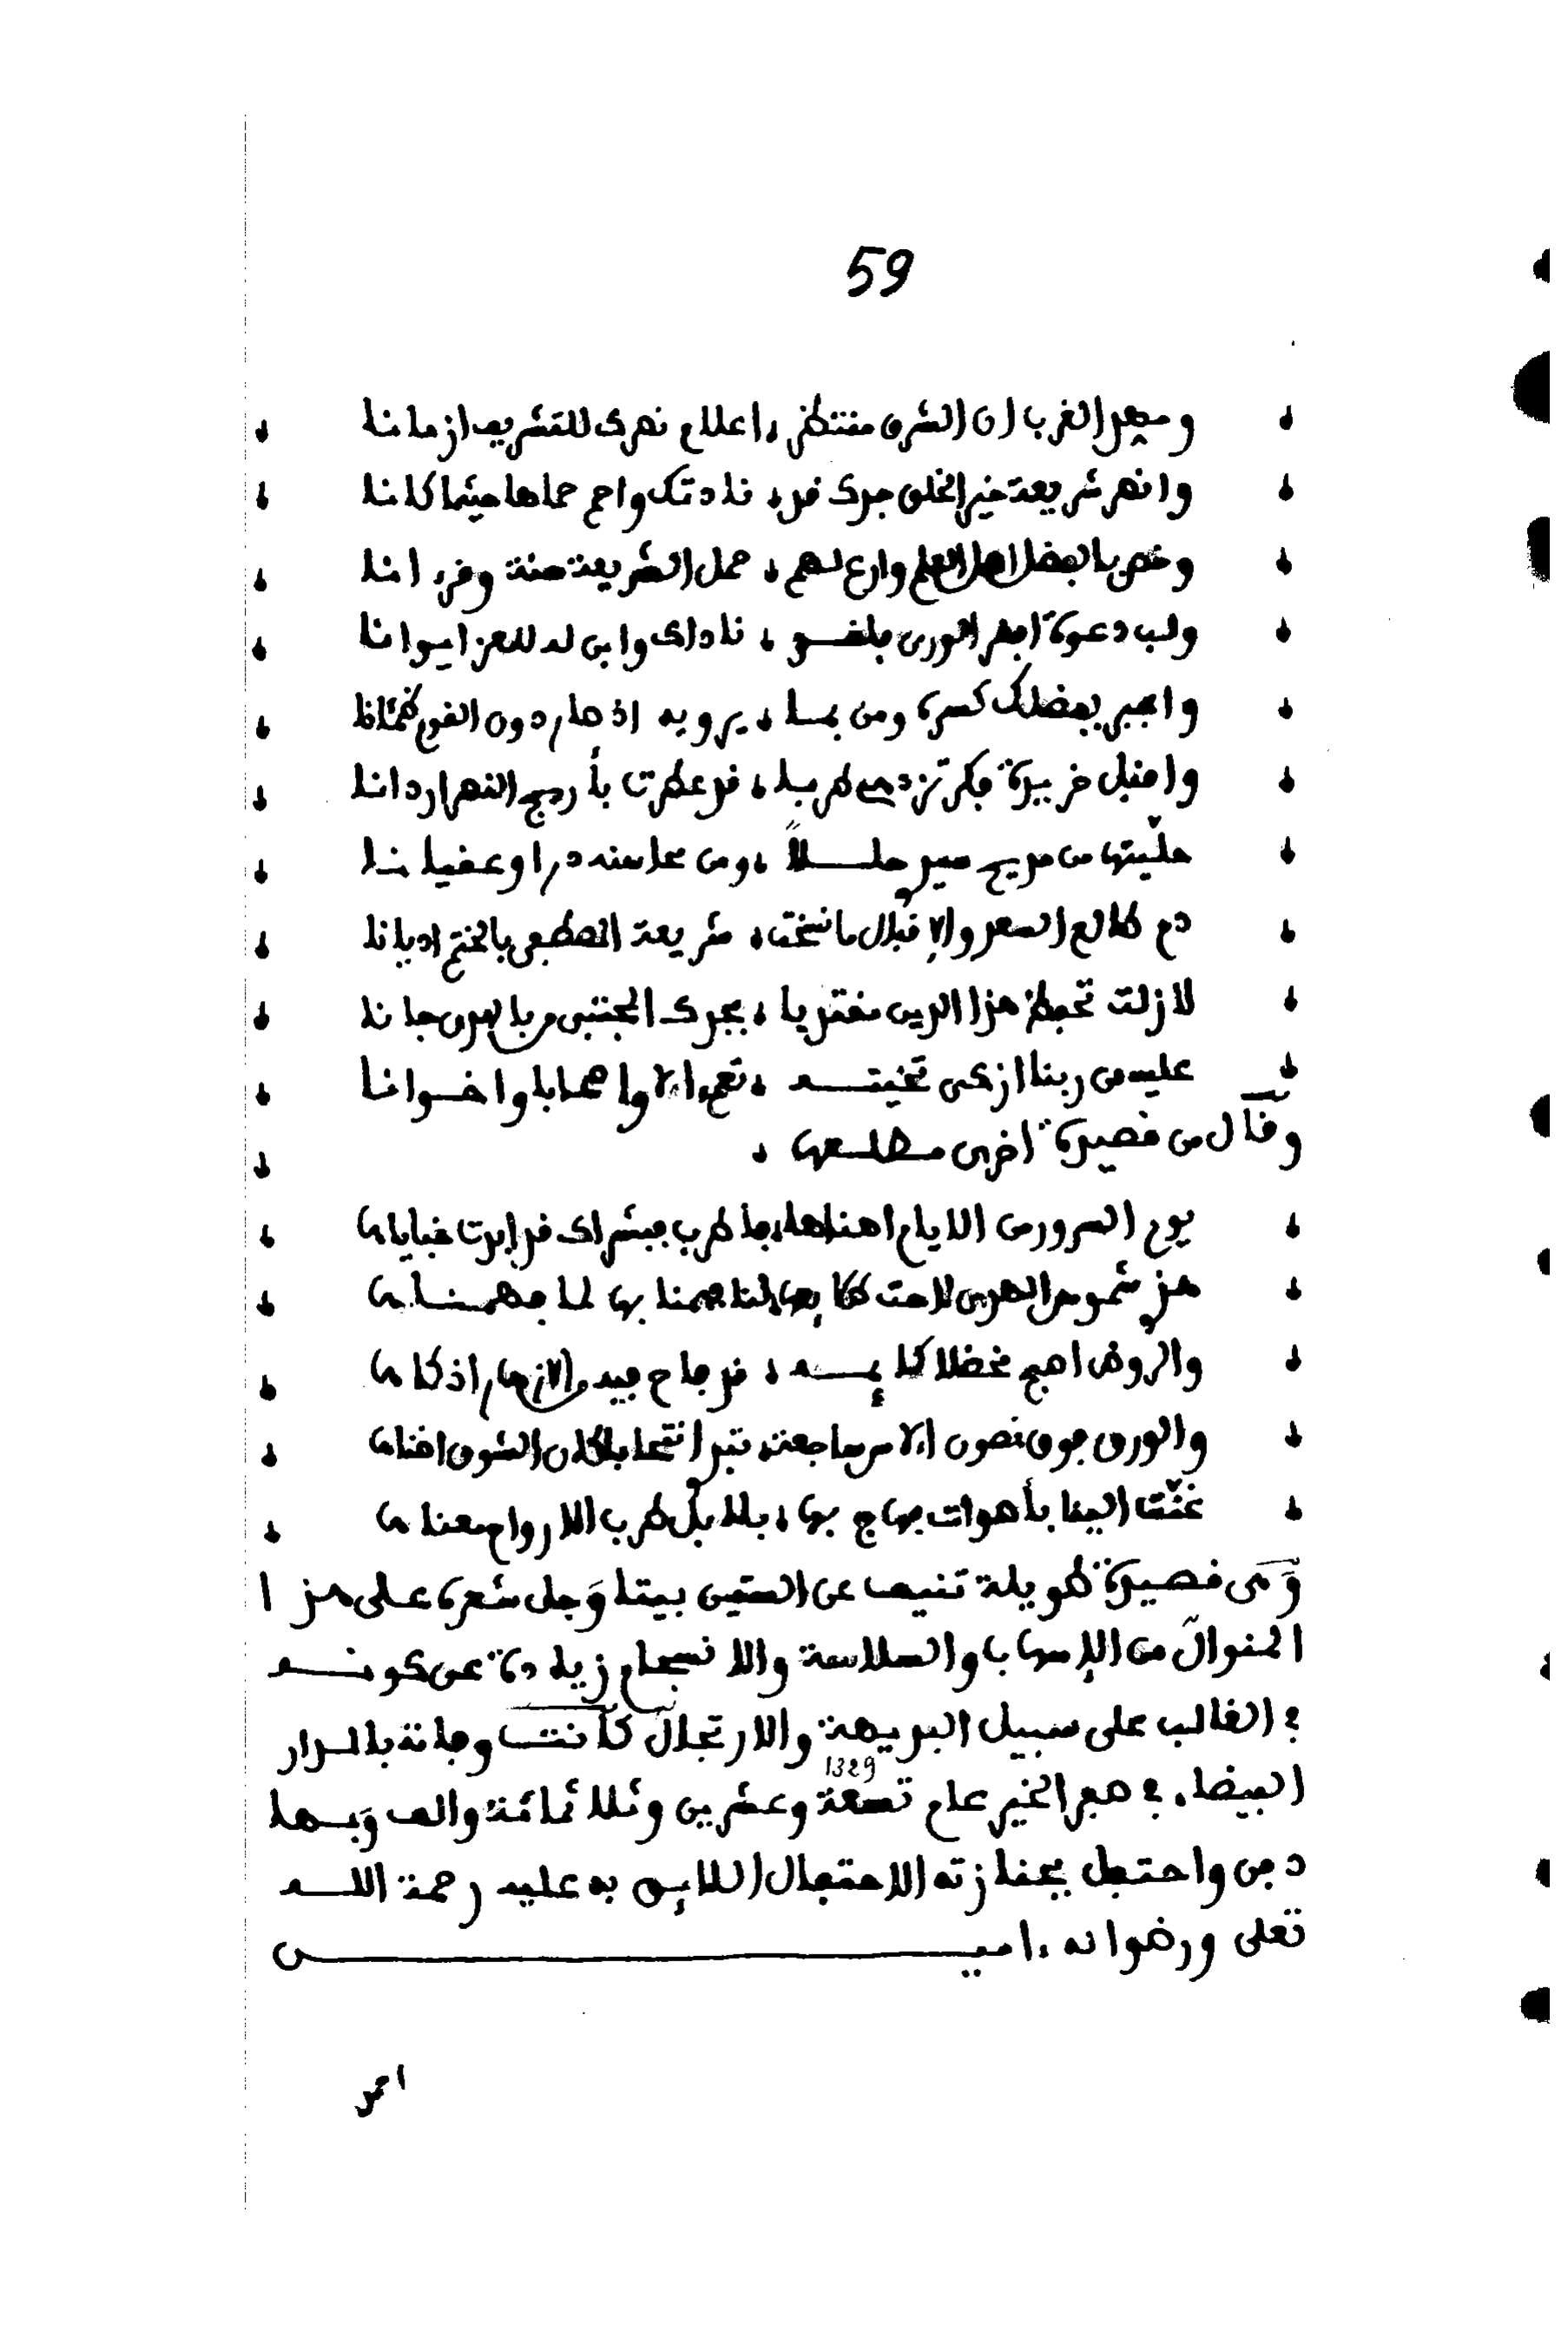 59
وسعر الغرب ان الشرق منتظر ، اعلام نصرك للتشريف ازمانا
وانصر شريعة خير الخلق جدك قد ، نادتك واحم حماها حيثما كانا
وخص بالفضل اهل العلم وارع لهم ، حمل الشريعة منة
ولب دعوة ، ناداك وابن له للعز ايوانا
واجبر بفضلك كسره ومن بما ، يرويه اذ صار دون القوم ظمئانا
واقبل خريدة فكر تزدهي طربا ، قد عطرت بأريج النصر اردانا
حليتها من مديح سيد حللاً ، ومن محاسنه درا وعقيانا
دم طالع السعد والإقبال ما نسخت ، شريعة المصطفى بالختم اديانا
لا زلت تحفظ هذا الدين مقتديا ، بجدك المجتبى من بالهدى جانا
عليه من ربنا ازكى تحيتــه ، تعم ءالا واصحابا واخــوانا
وقال من قصيدة اخرى مطلــعها ،
يوم السرور من الايام اهناها ، يا طرب ببشراك قد ابدت خباياها
هذه شموس الهدى لاحت
والروض اصبح مخضلا ، قد فاح فيه من الازهار اذكاها
والورق فوق غصون الانس ساجعة ، الشوق افناها
غنّت الينا بأصوات يهاج بها ، بلابل طرب الارواح معناها
وَهى قصيدة طويلة تنيف عن الستين بيتا وَجل شعره على هذا
المنوال من الإسهاب والسلاسة والانسجام زيادة عن كونــه
في الغالب على سبيل البديهة والارتجال كانت وفاته بالدار
1329
البيضاء في صفر الخير عام تسعة وعشرين وثلاثمائة والف وَبــها
دفن واحتفل بجنازته الاحتفال اللايق به عليه رحمة اللــه
تعلى ورضوانه ءاميــــــن
احمد